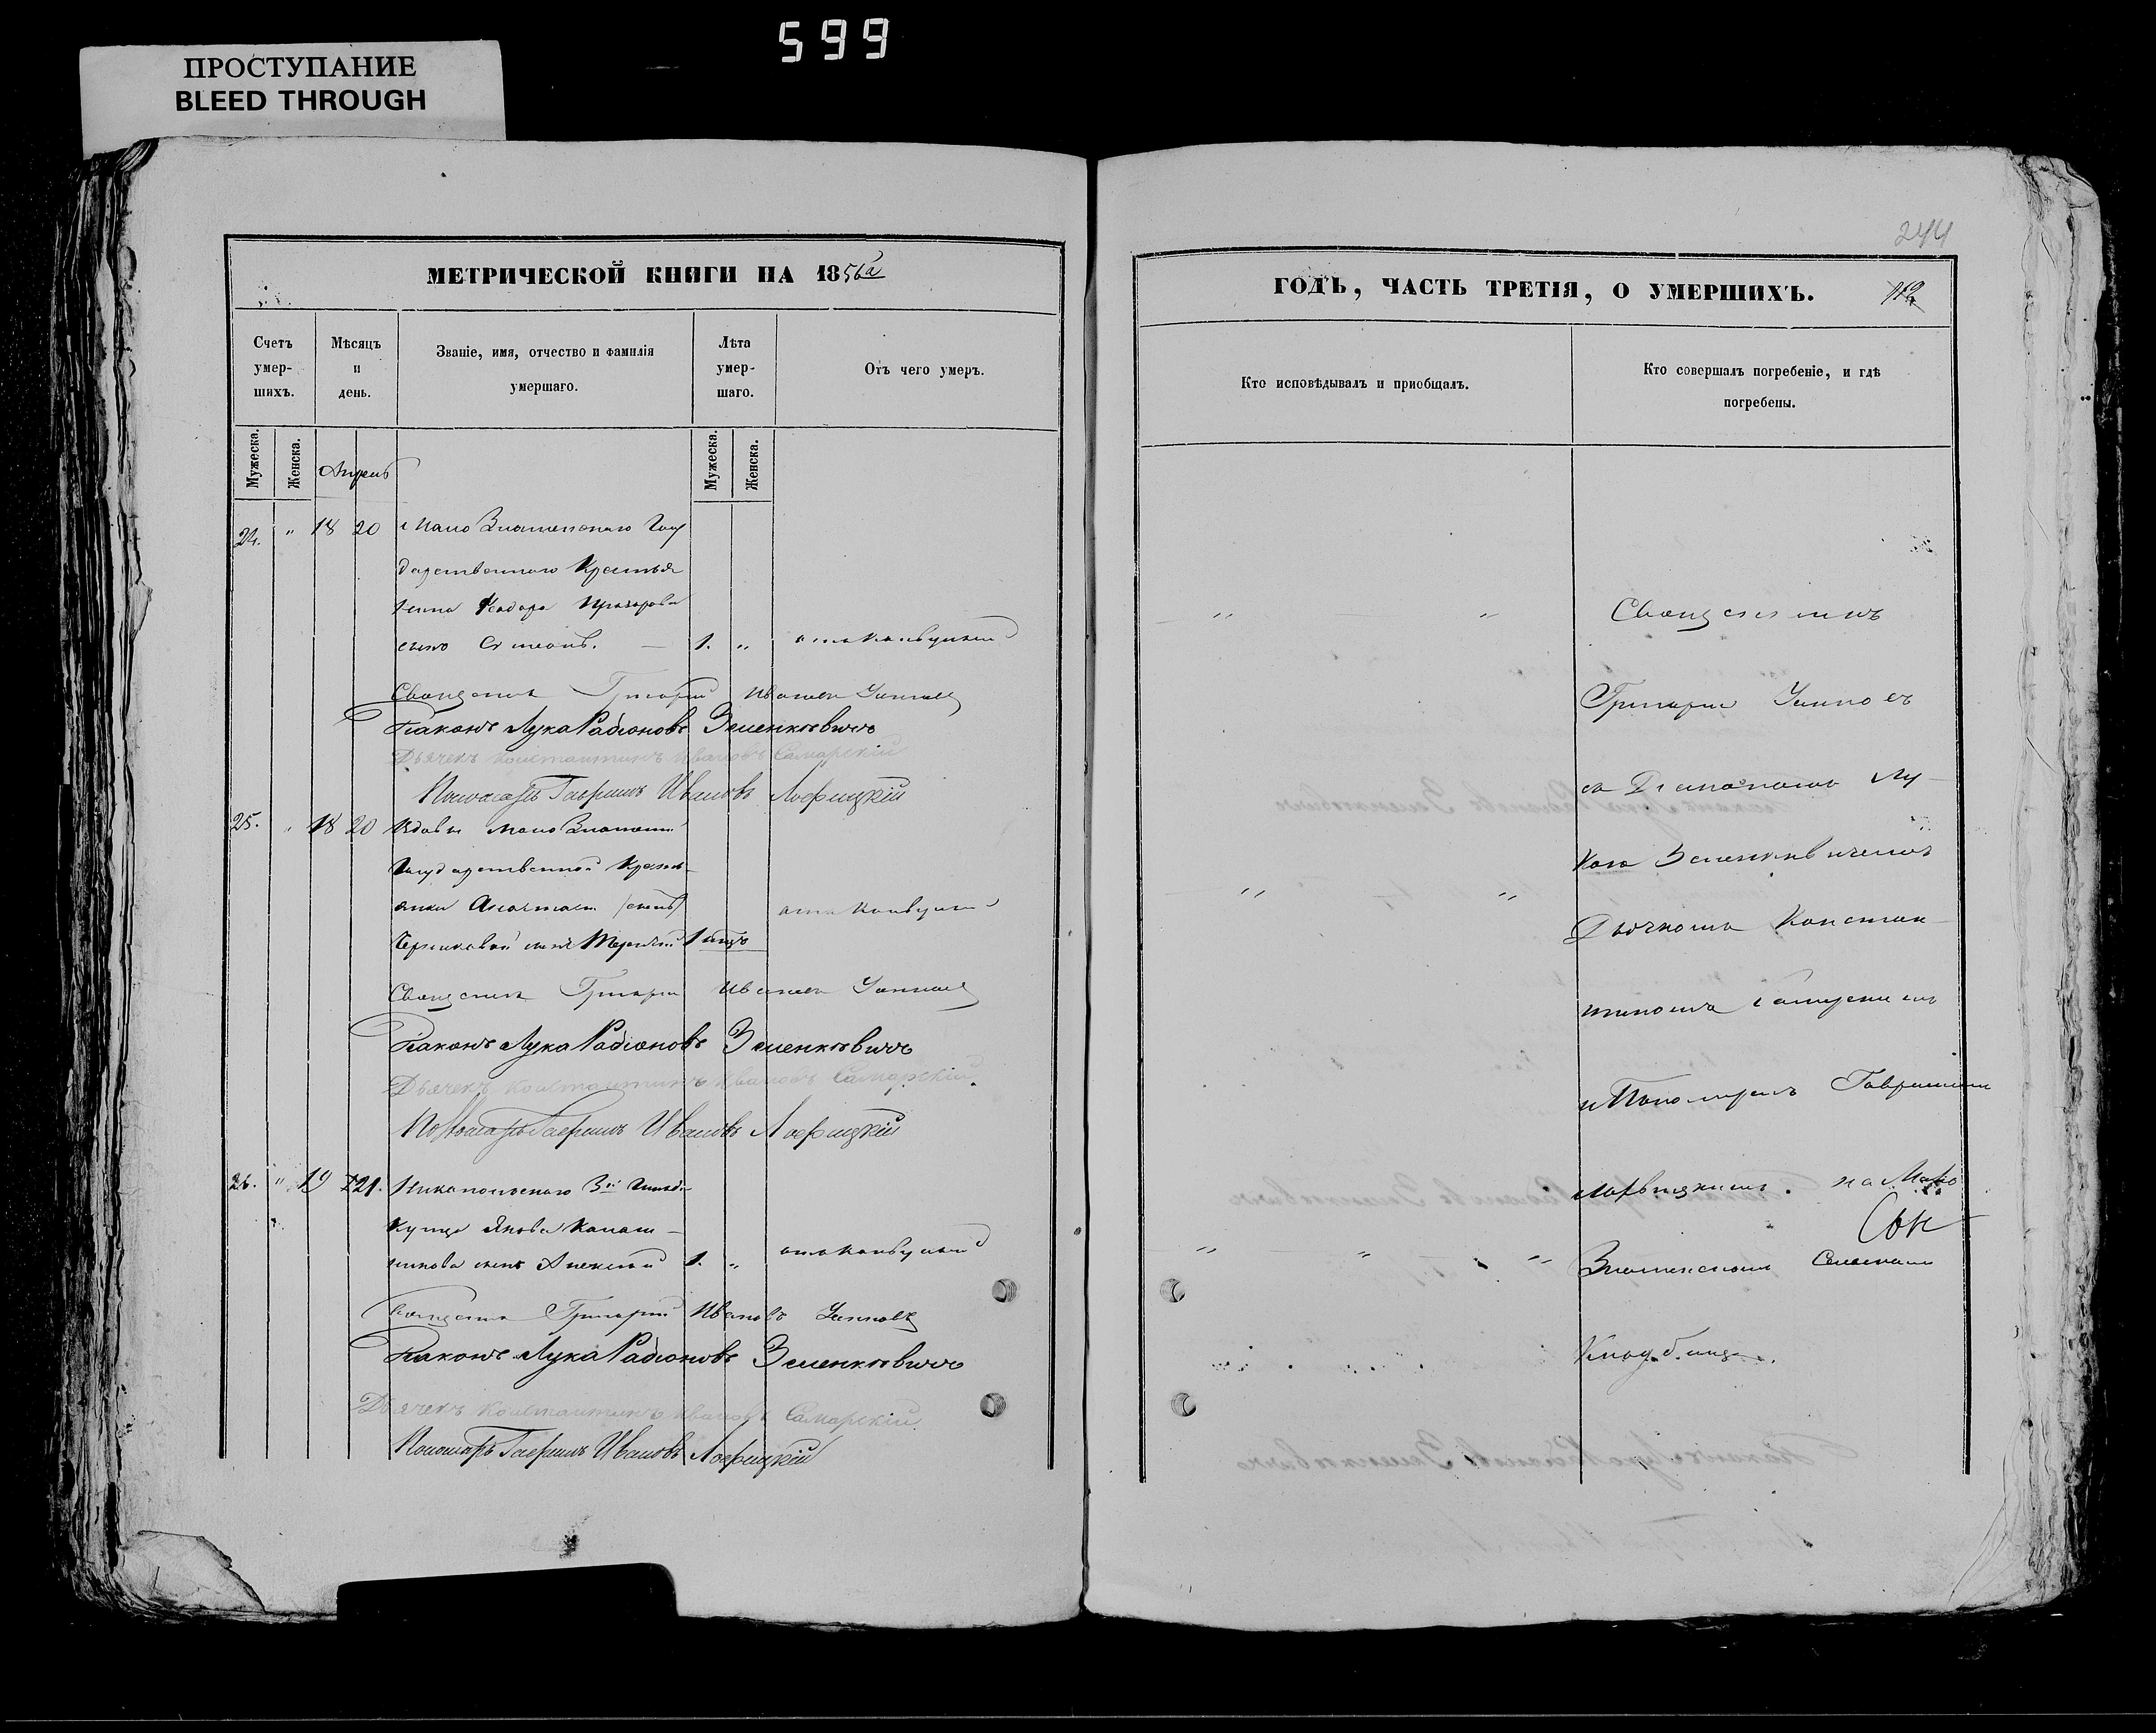 599
ПРОСТУПАНИЕ
BLEED THROUGH
МЕТРИЧЕСКОЙ КНИГИ НА 1856й
Счетъ умер-шихъ.
Мѣсяцъ и день.
Званіе, имя, отчество и фамилія умершаго.
Лѣта умер-шаго.
Отъ чего умеръ.
Мужеска.
Женска.
Мужеска.
Женска.
Апрель
24. " 18 20 Мало Знаменскаго Госу
дарственнаго Крестья
нина Феодора Прохорова
сынъ Симеонъ. — 1. " отъ конвульсій
Священникъ Григорій Ивановъ
Диаконъ Лука Радіоновъ Зеленкѣвичъ
Дьячекъ Константинъ Ивановъ Самарскій
Пономарь Гавриилъ Ивановъ Лофицкій
25. " 18 20 Вдовы Мало Знаменс
Государственной Кресть-
янки
сынъ 1 отъ конвульсій
Священникъ Григорій Ивановъ
Диаконъ Лука Радіоновъ Зеленкѣвичъ
Дьячекъ Константинъ Ивановъ Самарскій
Пономарь Гавриилъ Ивановъ Лофицкій
26. " 19 21. Никопольскаго 3й Гильд
Купца Якова
сынъ Алексѣй 1. " отъ конвульсій
Священникъ Григорій Ивановъ
Диаконъ Лука Радіоновъ Зеленкѣвичъ
Дьячекъ Константинъ Ивановъ Самарскій
Пономарь Гавриилъ Ивановъ Лофицкій
244
ГОДЪ, ЧАСТЬ ТРЕТІЯ, О УМЕРШИХЪ.
Кто исповѣдывалъ и приобщалъ.
Кто совершалъ погребеніе, и гдѣ погребены.
" " Священникъ
Григорій
съ Діакономъ Лу-
кою Зеленкевичемъ
Дьячкомъ Констан-
тиномъ Самарскимъ
и Пономаремъ Гавриломъ
Лофицкимъ. на Мало
Знаменскомъ Сельскомъ
Кладбищѣ.